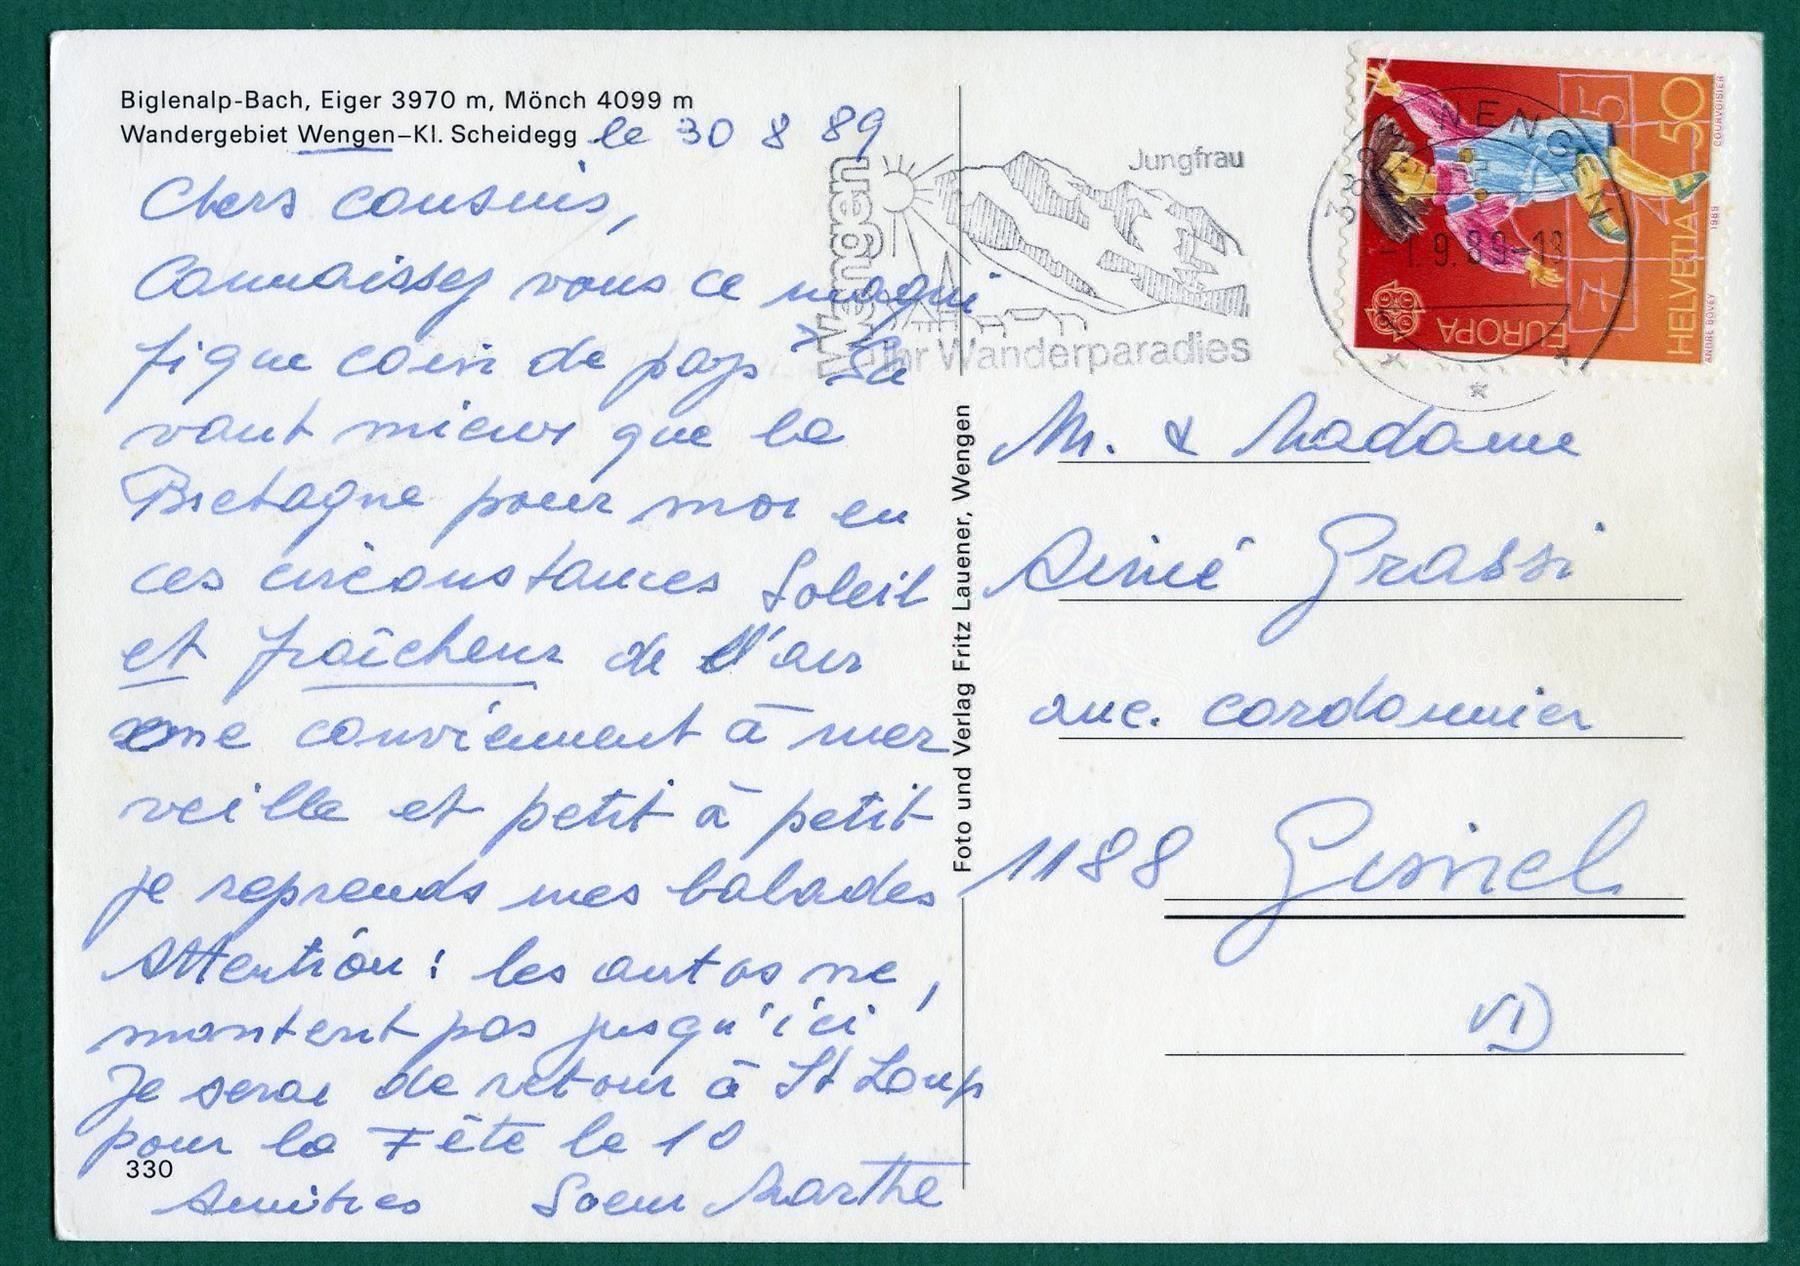 Biglenalp-Bach, Eiger 3970 m, Mönch 4099 m
Wandergebiet Wengen–Kl. Scheidegg
le 30 8 89
Chers cousins,
Connaissez vous ce magni
fique coin de pays ? Ça
vaut mieux que la
Bretagne pour moi en
ces circonstances Soleil
et fraîcheur de l'air
me conviennent à mer
veille et petit à petit
je reprends mes balades
Attention : les autos ne
montent pas jusqu'ici !
Je serai de retour à St Loup
pour la Fête le 10
330
Amitiés Soeur Marthe
Foto und Verlag Fritz Lauener, Wengen
Wengen
Jungfrau
Ihr Wanderparadies
3823 WENGEN
-1.9.89-18
HELVETIA 50
EUROPA
COURVOISIER
1989
ANDRE BOVEY
M. & Madame
Aimé Grassi
anc. cordonnier
1188 Gimel
VD